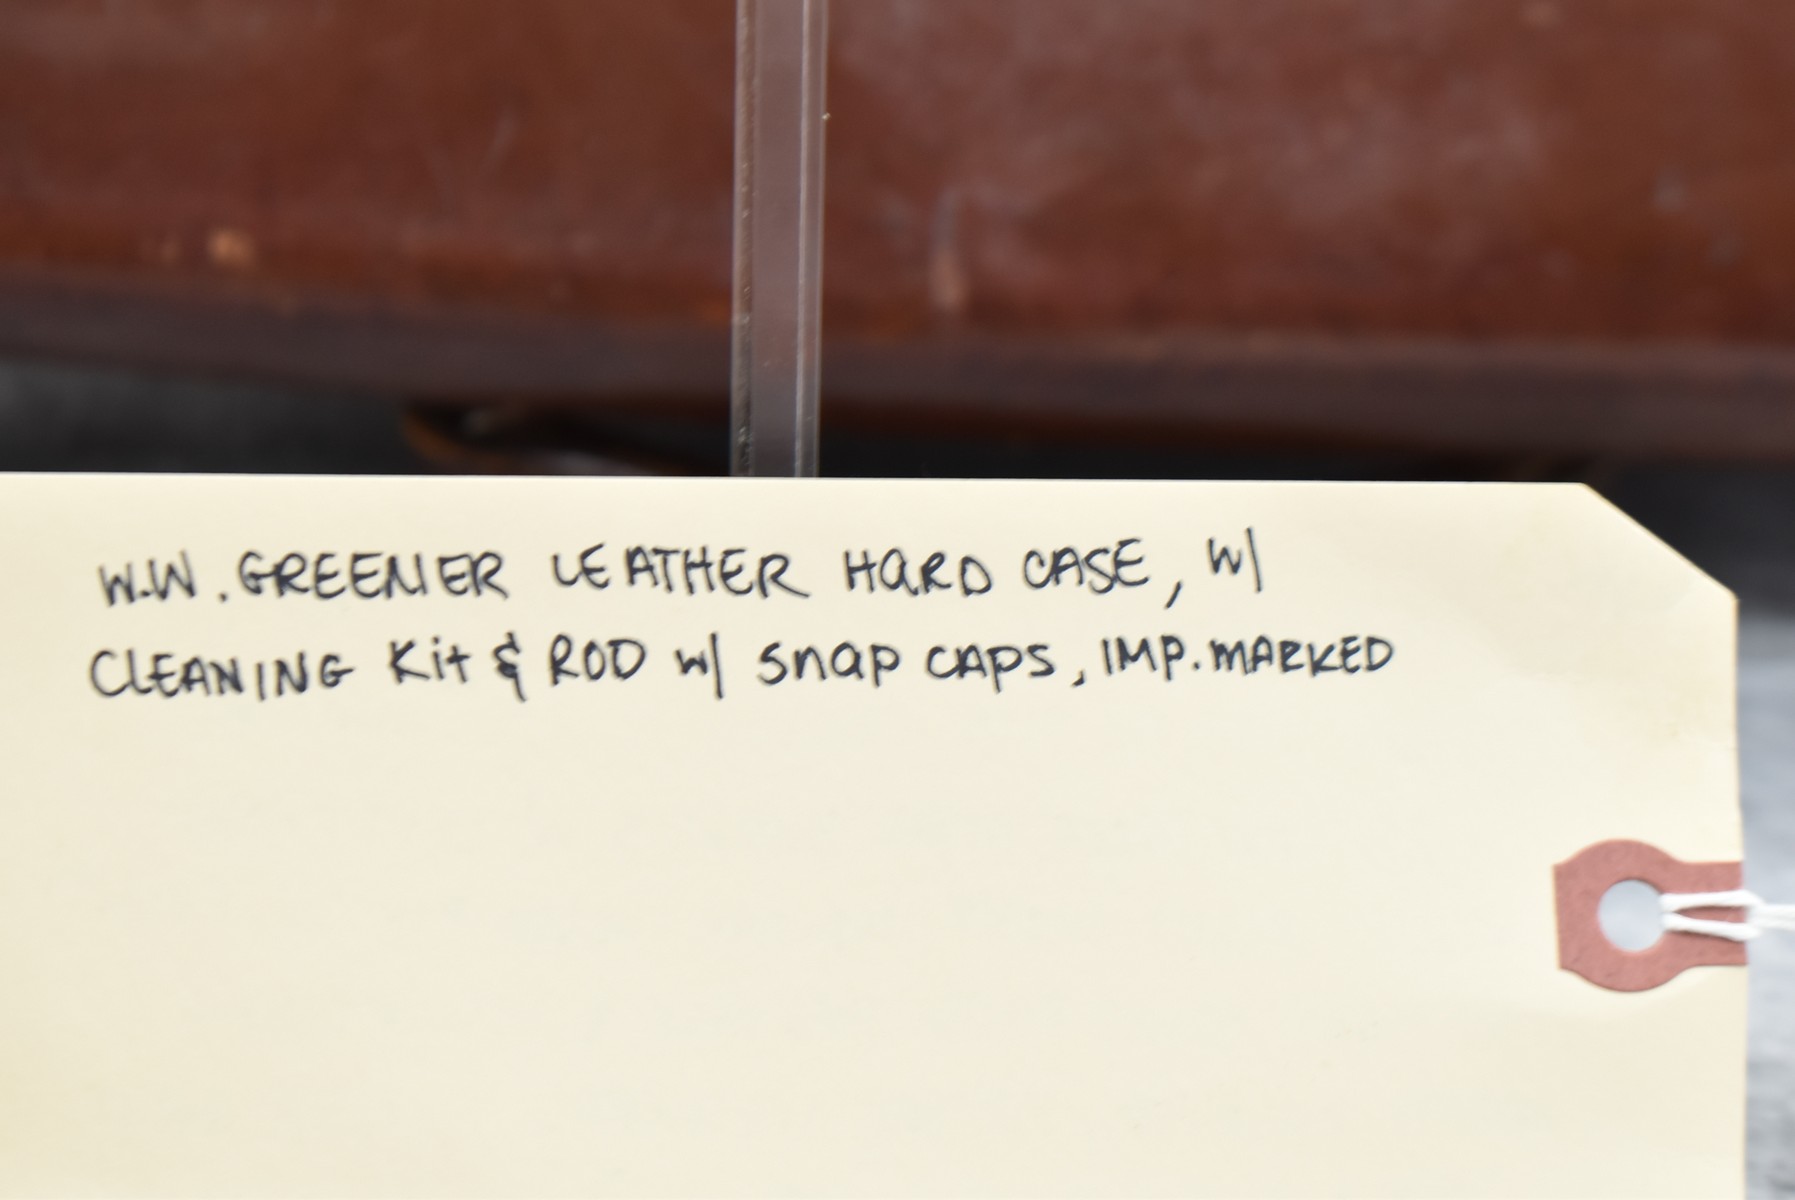 W.W. GREENER LEATHER HARD CASE, W/
CLEANING Kit & ROD w/ Snap CAPS, IMP. MARKED